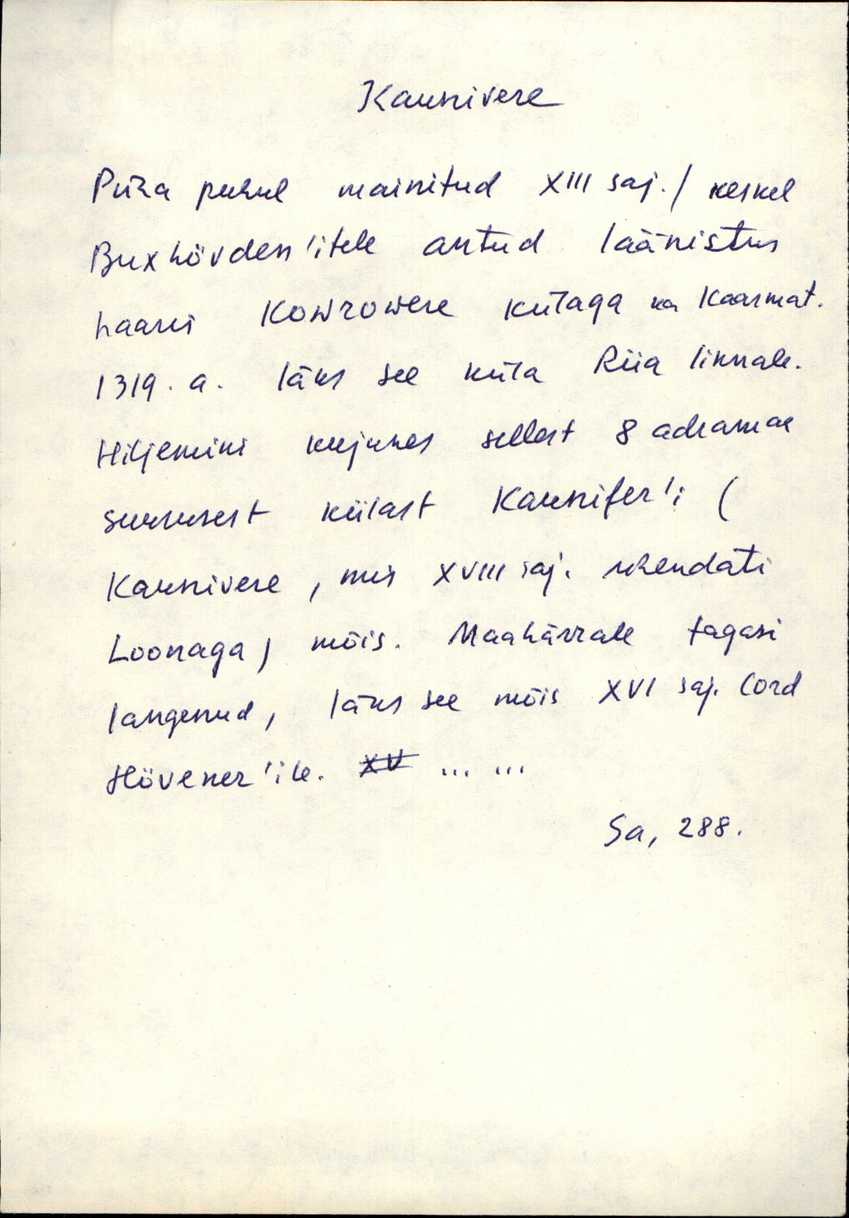 Kaunivere
Püha puhul mainitud XIII saj./ keskel
Buxhövden'itele antud läänistus
haaras Kowrowere külaga ka Kaarmat.
1319. a. läks see küla Riia linnale.
Hiljemini kujunes sellest 8 adramaa
suurusest külast Kaunifer'i (
Kaunivere, mis XVIII saj. ühendati
Loonaga) mõis. Maahärrale tagasi
langenud, läks see mõis XVI saj. Cord
Hövener'ile. XV ... ...
Sa, 288.